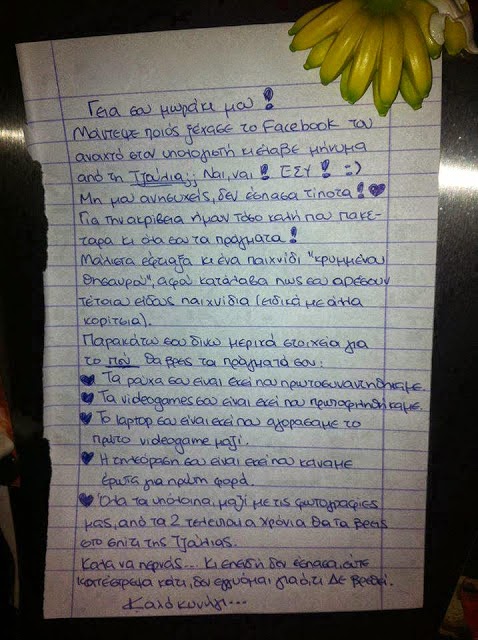 Γεια σου μωράκι μου!
Μάντεψε ποιός ξέχασε το Facebook του
ανοιχτό στον υπολογιστή κι έλαβε μήνυμα
από τη Τζούλια;; Ναι, ναι! ΕΣΥ! :-)
Μη μου ανησυχείς, δεν έσπασα τίποτα! ♥
Για την ακρίβεια ήμουν τόσο καλή που πακε-
ταρα κι όλα σου τα πράγματα!
Μάλιστα έφτιαξα κι ένα παιχνίδι "κρυμμένου
θησαυρού", αφού κατάλαβα πως σου αρέσουν
τέτοιου είδους παιχνίδια (ειδικά με άλλα
κορίτσια).
Παρακάτω σου δίνω μερικά στοιχεία για
το πού θα βρεις τα πράγματά σου:
♥ Τα ρούχα σου είναι εκεί που πρωτοσυναντηθήκαμε.
♥ Τα videogames σου είναι εκεί που πρωτοφιληθήκαμε.
♥ Το laptop σου είναι εκεί που αγοράσαμε το
πρώτο videogame μαζί.
♥ Η τηλεόραση σου είναι εκεί που κάναμε
έρωτα για πρώτη φορά.
♥ Όλα τα υπόλοιπα, μαζί με τις φωτογραφίες
μας, από τα 2 τελευταία χρόνια θα τα βρεις
στο σπίτι της Τζούλιας.
Καλά να περνάς... Κι επειδή δεν έσπασα, ούτε
κατέστρεψα κάτι, δεν εγγυώμαι για ό,τι Δε βρεθεί.
Καλό κυνήγι...